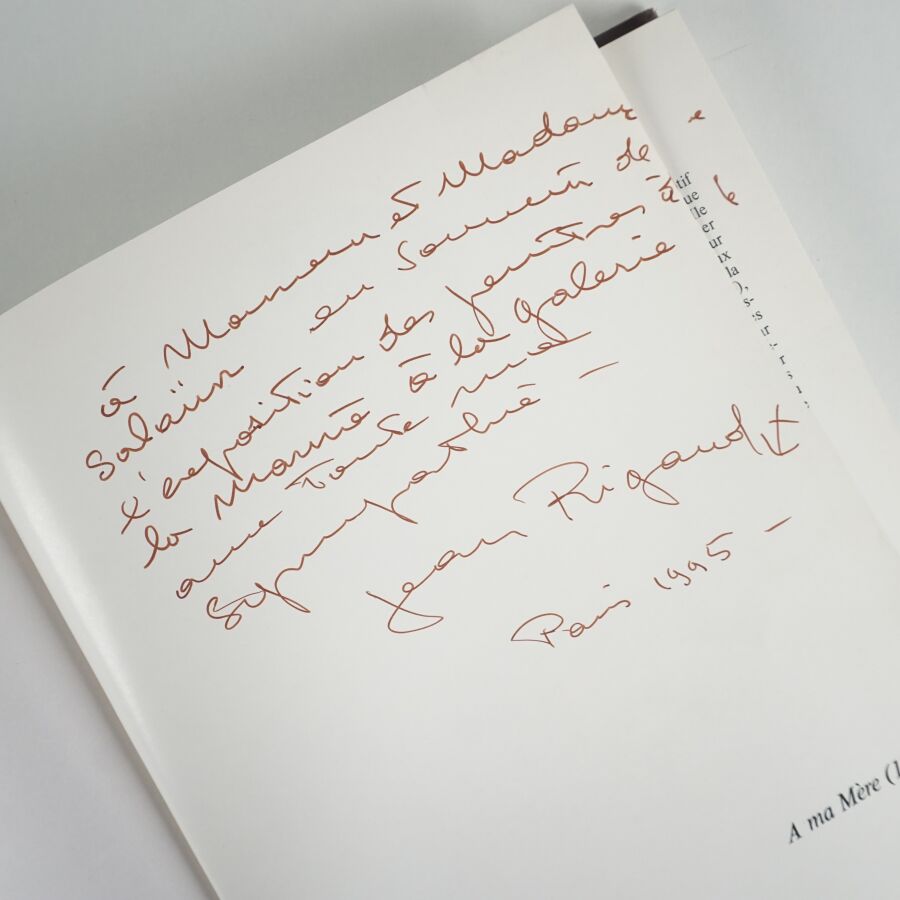 à Monsieur et Madame
Salaün en souvenir de
l'exposition des peintres à
la Marine à la galerie
avec toute ma
sympathie –
Jean Rigaud
Paris 1995 –
A ma Mère (1
tif
ue
lle
er
ur
ix
la
),
s-